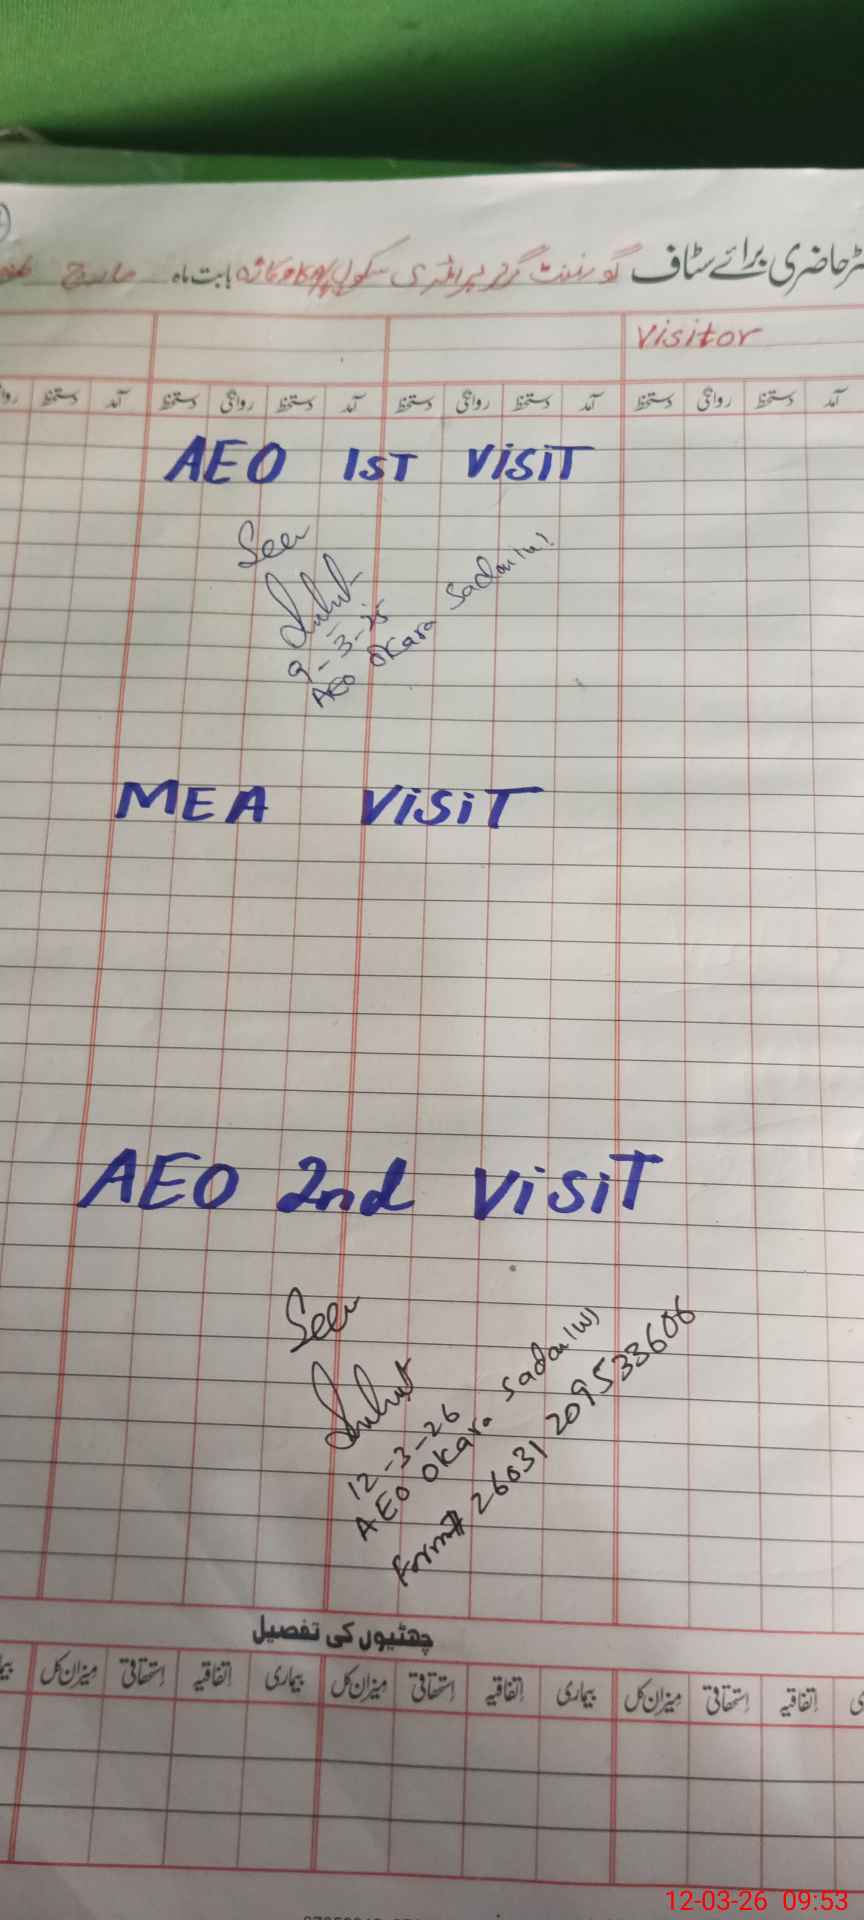 رجسٹر حاضری برائے سٹاف گورنمنٹ گرلز پرائمری سکول بابت ماہ مارچ
Visitor
آمد دستخط روانگی دستخط آمد دستخط روانگی دستخط آمد دستخط روانگی دستخط آمد دستخط
AEO 1ST VISIT
Seen
9-3-25
AEO Okara Sadar (w)
MEA VISIT
AEO 2nd VISIT
Seen
12-3-26
AEO Okara Sadar (w)
Form# 26031209533606
چھٹیوں کی تفصیل
اتفاقیہ استحقاقی میزان کل بیماری اتفاقیہ استحقاقی میزان کل بیماری اتفاقیہ استحقاقی میزان کل
12-03-26 09:53